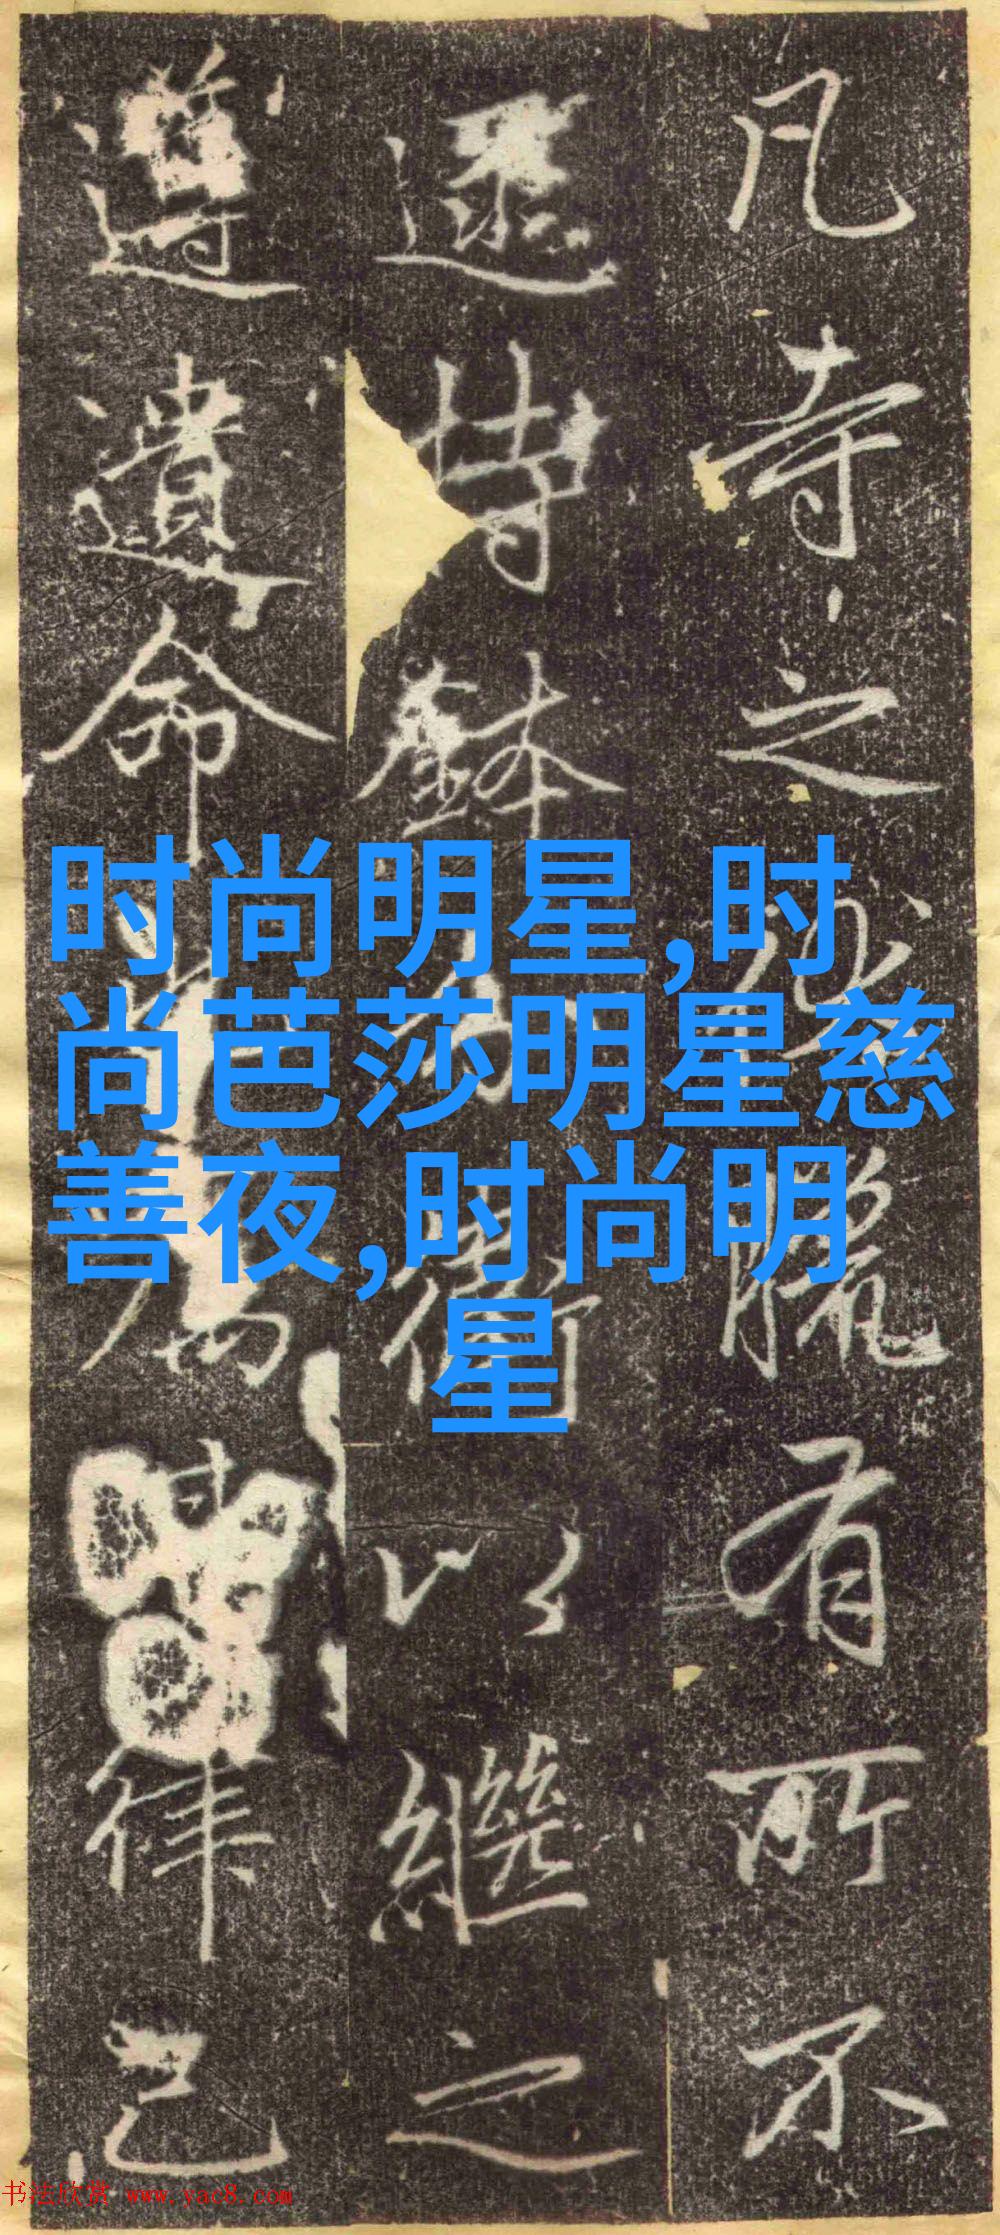 凡寺之戒臘有所不
還特缽衣衛以繼之
遵遺命
律己
时尚明星,时
尚芭莎明星慈
善夜,时尚明
星
书法欣赏 www.yac8.com